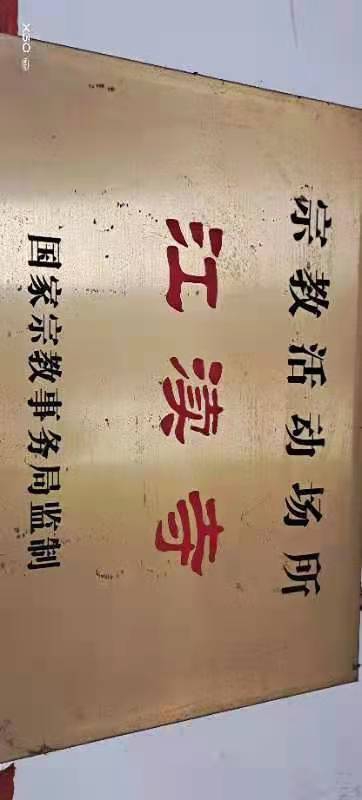 宗教活动场所
江渎寺
国家宗教事务局监制
X50